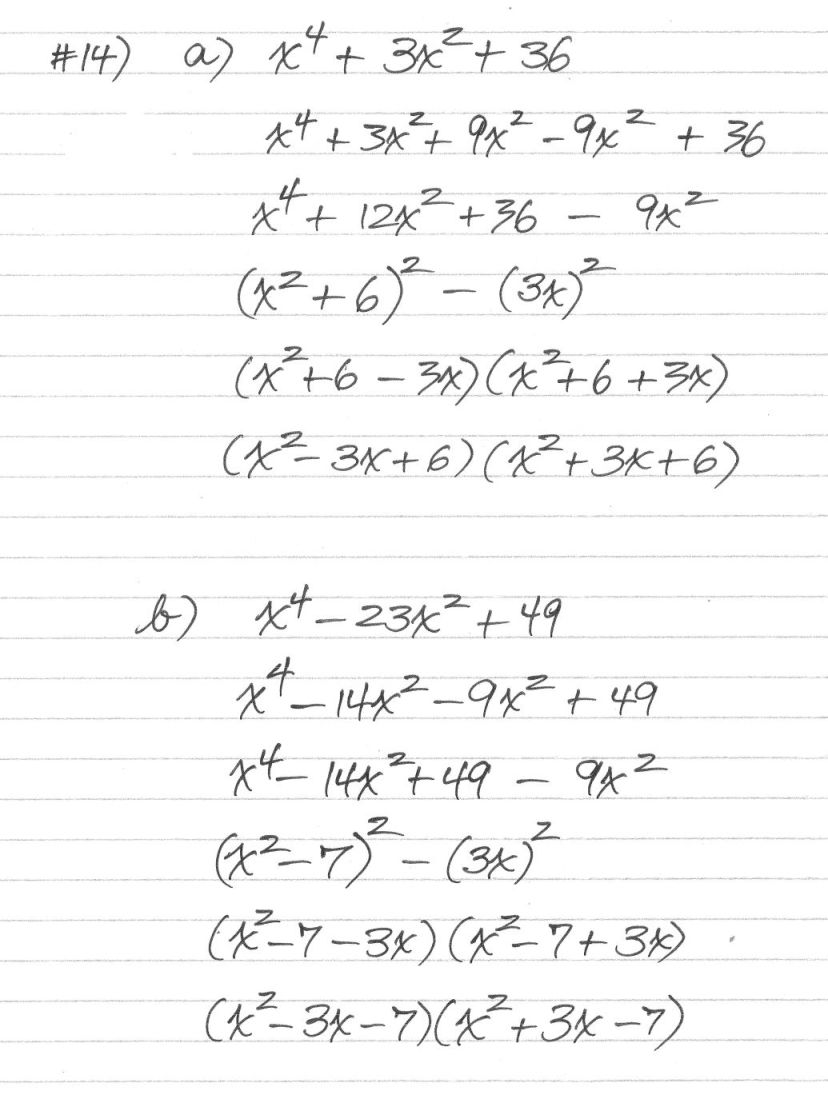 #14) a) x⁴ + 3x² + 36
x⁴ + 3x² + 9x² - 9x² + 36
x⁴ + 12x² + 36 - 9x²
(x² + 6)² - (3x)²
(x² + 6 - 3x)(x² + 6 + 3x)
(x² - 3x + 6)(x² + 3x + 6)
b) x⁴ - 23x² + 49
x⁴ - 14x² - 9x² + 49
x⁴ - 14x² + 49 - 9x²
(x² - 7)² - (3x)²
(x² - 7 - 3x)(x² - 7 + 3x)
(x² - 3x - 7)(x² + 3x - 7)